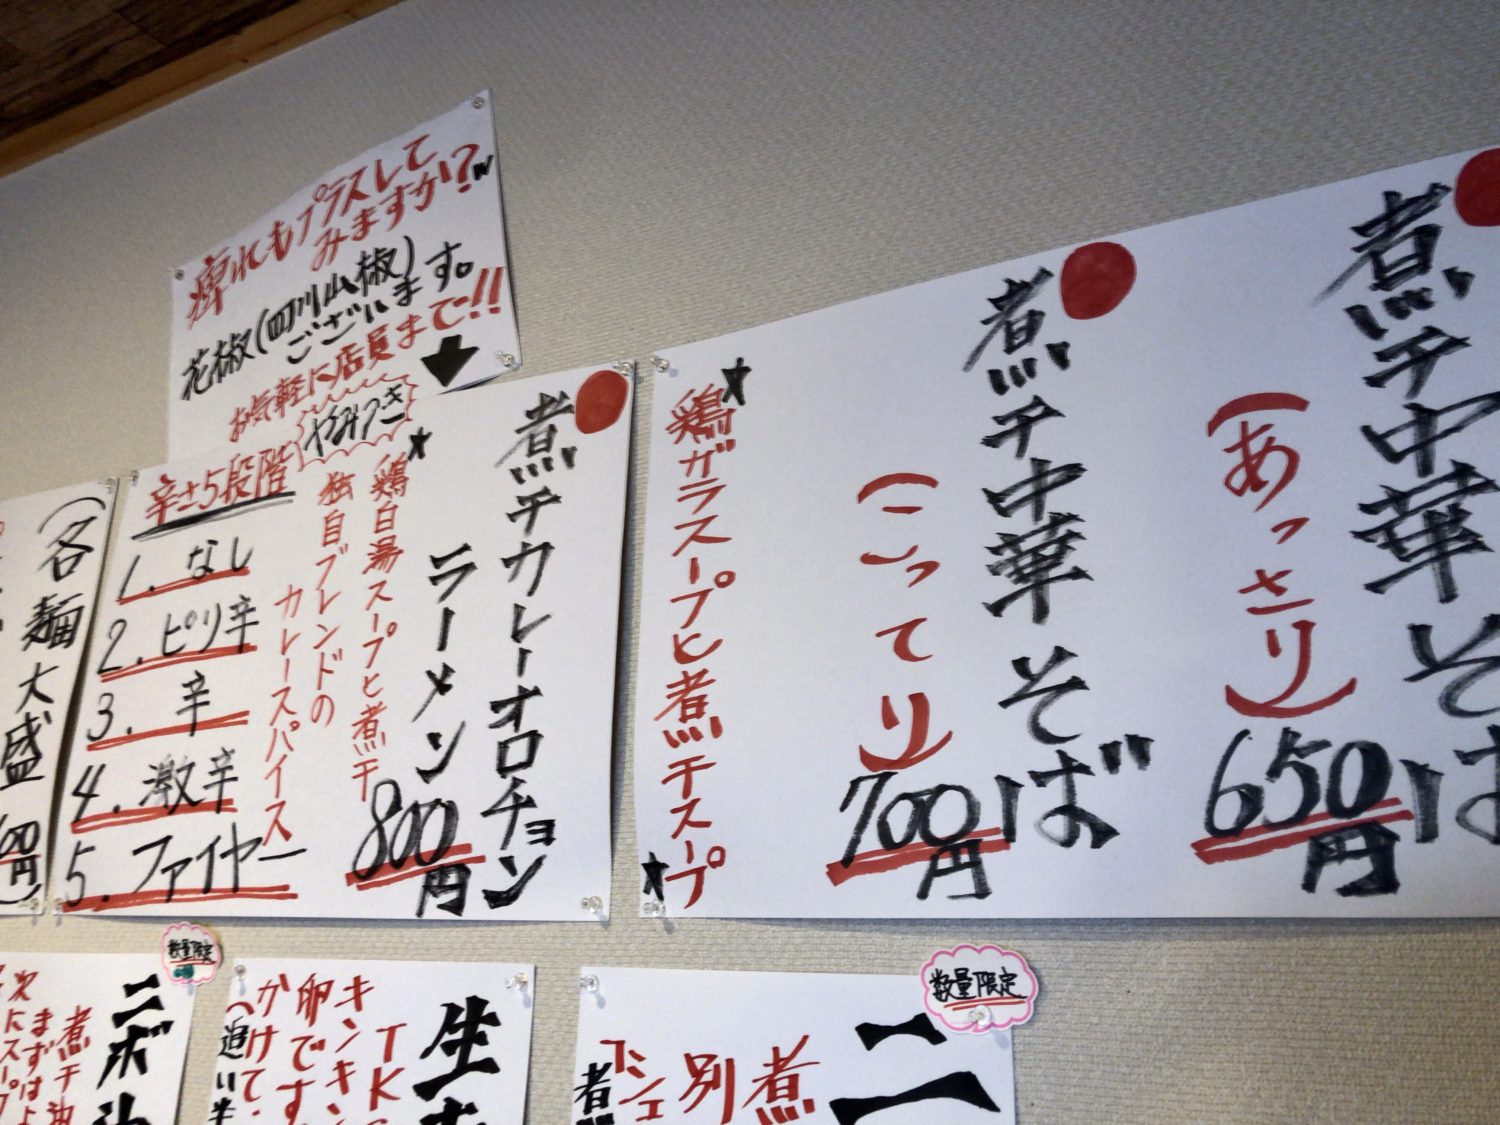 煮干中華そば
(あっさり)
650円
煮干中華そば
(こってり)
700円
★鶏ガラスープと煮干スープ★
痺れもプラスして
みますか?
花椒(四川山椒)
ございます。
お気軽に店員まで!!
やみつき
煮干カレーオロチョン
ラーメン
800円
★鶏白湯スープと煮干
独自ブレンドの
カレースパイス
辛さ5段階
1. なし
2. ピリ辛
3. 辛
4. 激辛
5. ファイヤー
(各麺大盛100円)
数量限定
煮
別
数量限定
生
キンキン
卵です
かけて.
(追い
数量限定
ニボ油
煮干油
まずはよ
次にスープ